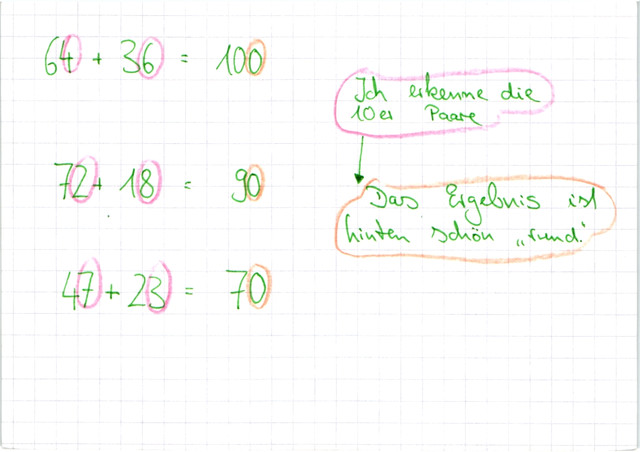 64 + 36 = 100
Ich erkenne die
10er Paare
72 + 18 = 90
Das Ergebnis ist
hinten schön „rund."
47 + 23 = 70